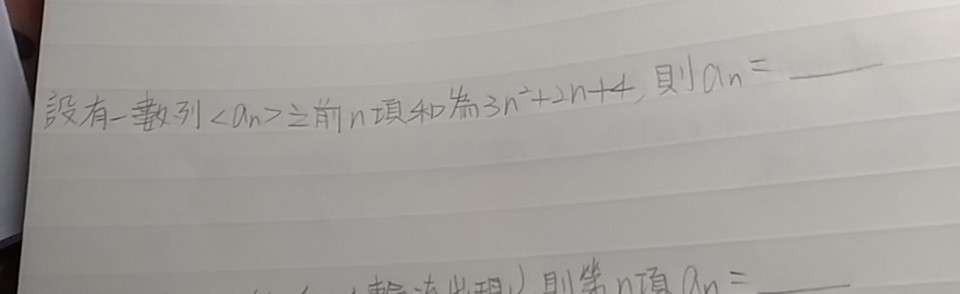 設有一數列<an>之前n項和為3n²+2n+4,則an=____
出現)則第n項an=____